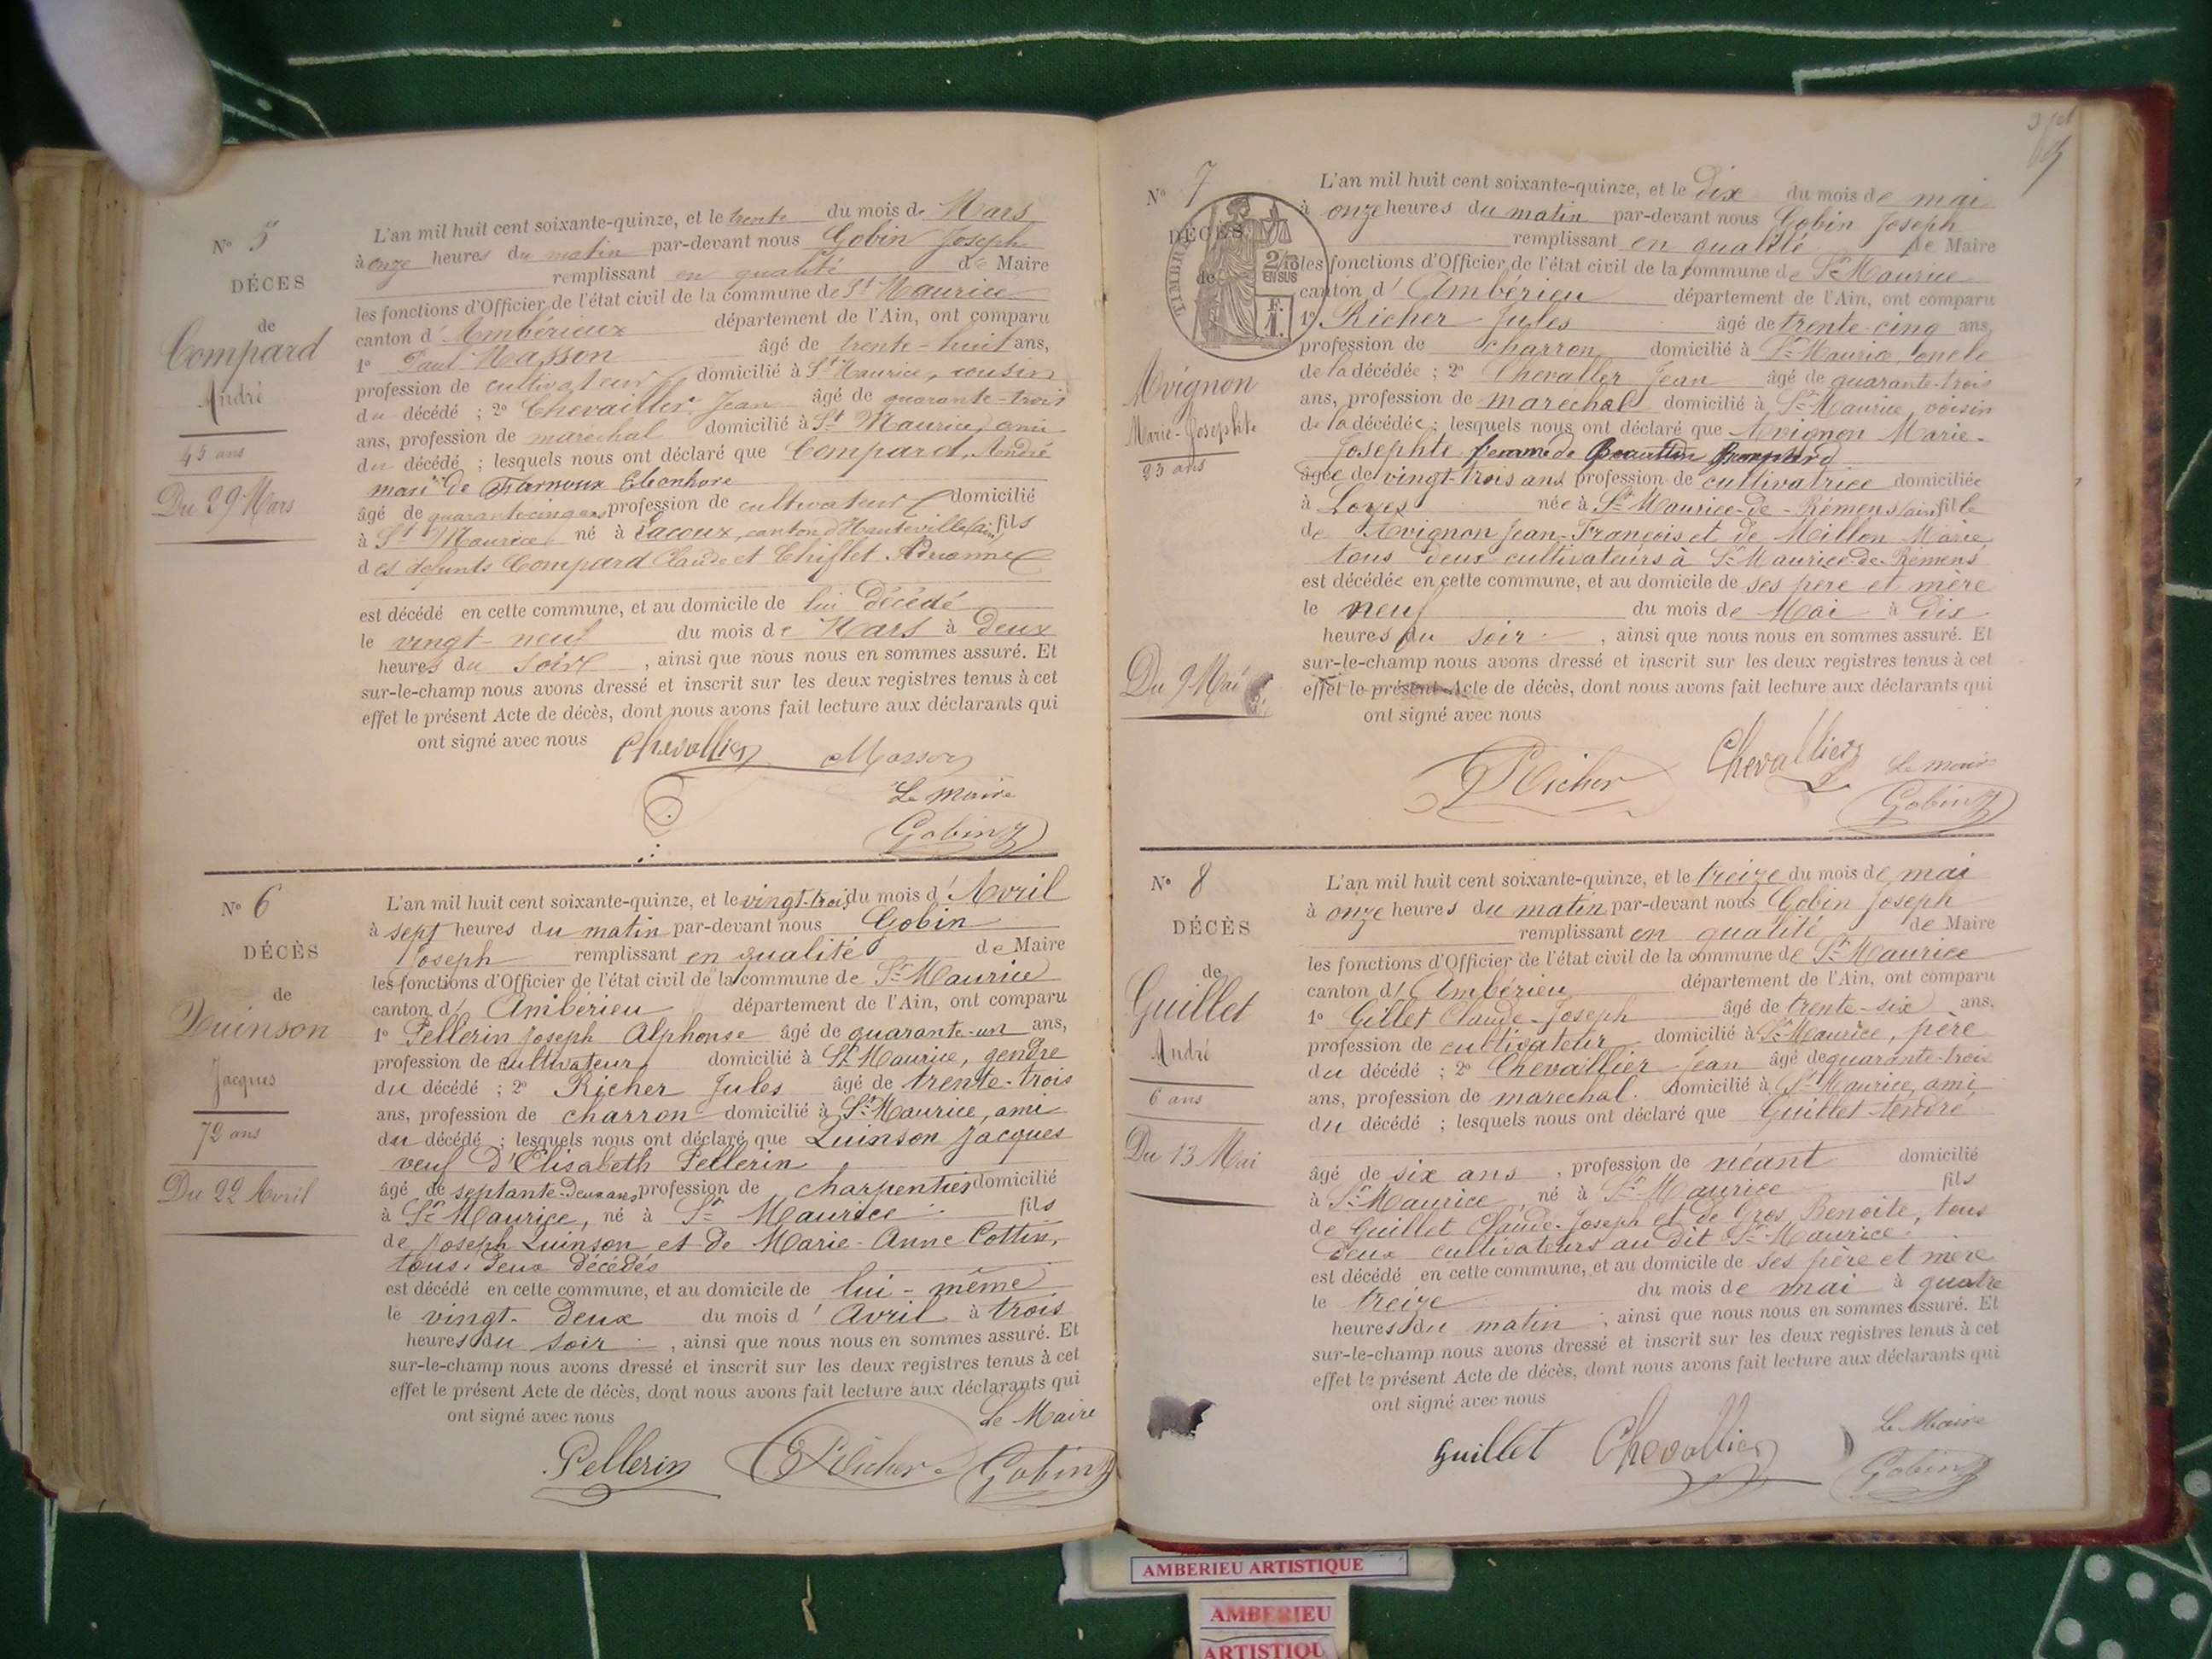 N° 5
DÉCES
de
Compard
André
45 ans
Du 29 Mars
L'an mil huit cent soixante-quinze, et le trente du mois de Mars
à onze heures du matin par-devant nous Gobin Joseph
remplissant en qualité de Maire
les fonctions d'Officier de l'état civil de la commune de St Maurice
canton d' Ambérieux département de l'Ain, ont comparu
1° Paul Masson âgé de trente-huit ans,
profession de cultivateur domicilié à St Maurice, cousin
du décédé ; 2° Chevallier Jean âgé de quarante-trois
ans, profession de maréchal domicilié à St Maurice, ami
du décédé ; lesquels nous ont déclaré que Compard, André
mari de
âgé de quarante cinq ans profession de cultivateur domicilié
à St Maurice né à Lacoux, canton d'Hauteville (ain) fils
des defunts Compard Claude et Chiflet
est décédé en cette commune, et au domicile de lui Décédé
le vingt-neuf du mois de Mars à Deux
heures du soir , ainsi que nous nous en sommes assuré. Et
sur-le-champ nous avons dressé et inscrit sur les deux registres tenus à cet
effet le présent Acte de décès, dont nous avons fait lecture aux déclarants qui
ont signé avec nous Chevallier Masson
Le maire
Gobin J
N° 6
DÉCÈS
de
Quinson
Jacques
72 ans
Du 22 Avril
L'an mil huit cent soixante-quinze, et le vingt-trois du mois d' Avril
à sept heures du matin par-devant nous Gobin
Joseph remplissant en qualité de Maire
les fonctions d'Officier de l'état civil de la commune de St Maurice
canton d' Ambérieu département de l'Ain, ont comparu
1° Pellerin Joseph Alphonse âgé de quarante-un ans,
profession de cultivateur domicilié à St Maurice, gendre
du décédé ; 2° Richer Jules âgé de trente-trois
ans, profession de charron domicilié à St Maurice, ami
du décédé ; lesquels nous ont déclaré que Quinson Jacques
veuf d'Elisabeth Pellerin
âgé de septante-Deux ans profession de charpentier domicilié
à St Maurice, né à St Maurice fils
de Joseph Quinson et de Marie-Anne Cottin,
tous Deux Décédés
est décédé en cette commune, et au domicile de lui-même
le vingt-Deux du mois d' Avril à trois
heures du soir , ainsi que nous nous en sommes assuré. Et
sur-le-champ nous avons dressé et inscrit sur les deux registres tenus à cet
effet le présent Acte de décès, dont nous avons fait lecture aux déclarants qui
ont signé avec nous Le Maire
Pellerin Richer Gobin J
N° 7
DÉCÈS
de
TIMBRE
2/10
EN SUS
F.
1.
Avignon
Marie-Josephte
23 ans
Du 9 Mai
L'an mil huit cent soixante-quinze, et le Dix du mois de mai
à onze heures du matin par-devant nous Gobin Joseph
remplissant en qualité de Maire
les fonctions d'Officier de l'état civil de la commune de St Maurice
canton d' Ambérieu département de l'Ain, ont comparu
1° Richer Jules âgé de trente-cinq ans,
profession de charron domicilié à St Maurice, oncle
de la décédée ; 2° Chevallier Jean âgé de quarante-trois
ans, profession de marechal domicilié à St Maurice, voisin
de la décédée ; lesquels nous ont déclaré que Avignon Marie-
Josephte femme de
âgée de vingt-trois ans profession de cultivatrice domiciliée
à Loyes née à St Maurice-de-Rémens (ain) fille
de Avignon Jean-François et de Millon Marie
tous Deux cultivateurs à St Maurice-de-Rémens
est décédée en cette commune, et au domicile de ses père et mère
le neuf du mois de Mai à Dix
heures du soir , ainsi que nous nous en sommes assuré. Et
sur-le-champ nous avons dressé et inscrit sur les deux registres tenus à cet
effet le présent Acte de décès, dont nous avons fait lecture aux déclarants qui
ont signé avec nous
Richer Chevallier Le maire
Gobin J
N° 8
DÉCÈS
de
Guillet
André
6 ans
Du 13 Mai
L'an mil huit cent soixante-quinze, et le treize du mois de mai
à onze heures du matin par-devant nous Gobin Joseph
remplissant en qualité de Maire
les fonctions d'Officier de l'état civil de la commune de St Maurice
canton d' Ambérieu département de l'Ain, ont comparu
1° Gillet Claude-Joseph âgé de trente-six ans,
profession de cultivateur domicilié à St Maurice, père
du décédé ; 2° Chevallier Jean âgé de quarante-trois
ans, profession de marechal. domicilié à St Maurice, ami
du décédé ; lesquels nous ont déclaré que Guillet André
âgé de six ans , profession de néant domicilié
à St Maurice, né à St Maurice fils
de Guillet Claude-Joseph et de Gros Benoite, tous
Deux cultivateurs au dit St Maurice.
est décédé en cette commune, et au domicile de ses père et mere
le treize du mois de mai à quatre
heures du matin ; ainsi que nous nous en sommes assuré. Et
sur-le-champ nous avons dressé et inscrit sur les deux registres tenus à cet
effet le présent Acte de décès, dont nous avons fait lecture aux déclarants qui
ont signé avec nous
Guillet Chevallier Le Maire
Gobin J
AMBERIEU ARTISTIQUE
AMBERIEU
ARTISTIQU